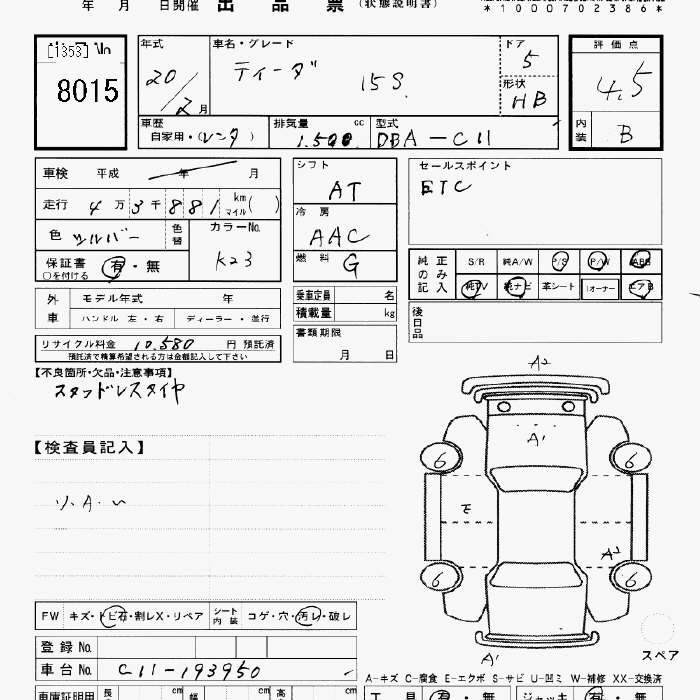 年 月 日開催 出品票 (状態説明書)
*1000702386*
(353) No
8015
年式
20/2月
車名・グレード
ティーダ 15S.
ドア
5
形状
HB
評価点
4.5
内装
B
車歴
自家用・(レンタ )
排気量 cc
1.500
型式
DBA-C11
車検 平成 年 月
走行 4万3千881 km マイル( )
色 シルバー
色替
カラーNo.
K23
保証書 有・無
○を付ける
外車 モデル年式 年
ハンドル 左・右 ディーラー・並行
リサイクル料金 10.580 円 預託済
預託済で精算希望される方は金額記入して下さい
シフト
AT
冷房
AAC
燃料
G
乗車定員 名
積載量 kg
書類期限
月 日
セールスポイント
ETC
純正のみ記入
S/R 純A/W P/S P/W ABS
純TV 純ナビ 革シート 1オーナー エアB
後日品
【不良箇所・欠品・注意事項】
スタッドレスタイヤ
【検査員記入】
ソ.A.い
A2
A1
6 6
E
A2
6 6
A1
スペア
FW キズ・トビ石・割レX・リペア シート内装 コゲ・穴・汚レ・破レ
登録No.
車台No. C11-193950
A-キズ C-腐食 E-エクボ S-サビ U-凹ミ W-補修 XX-交換済
車庫証明用 長 cm 幅 cm 高 cm
工具 有・無 ジャッキ 有・無